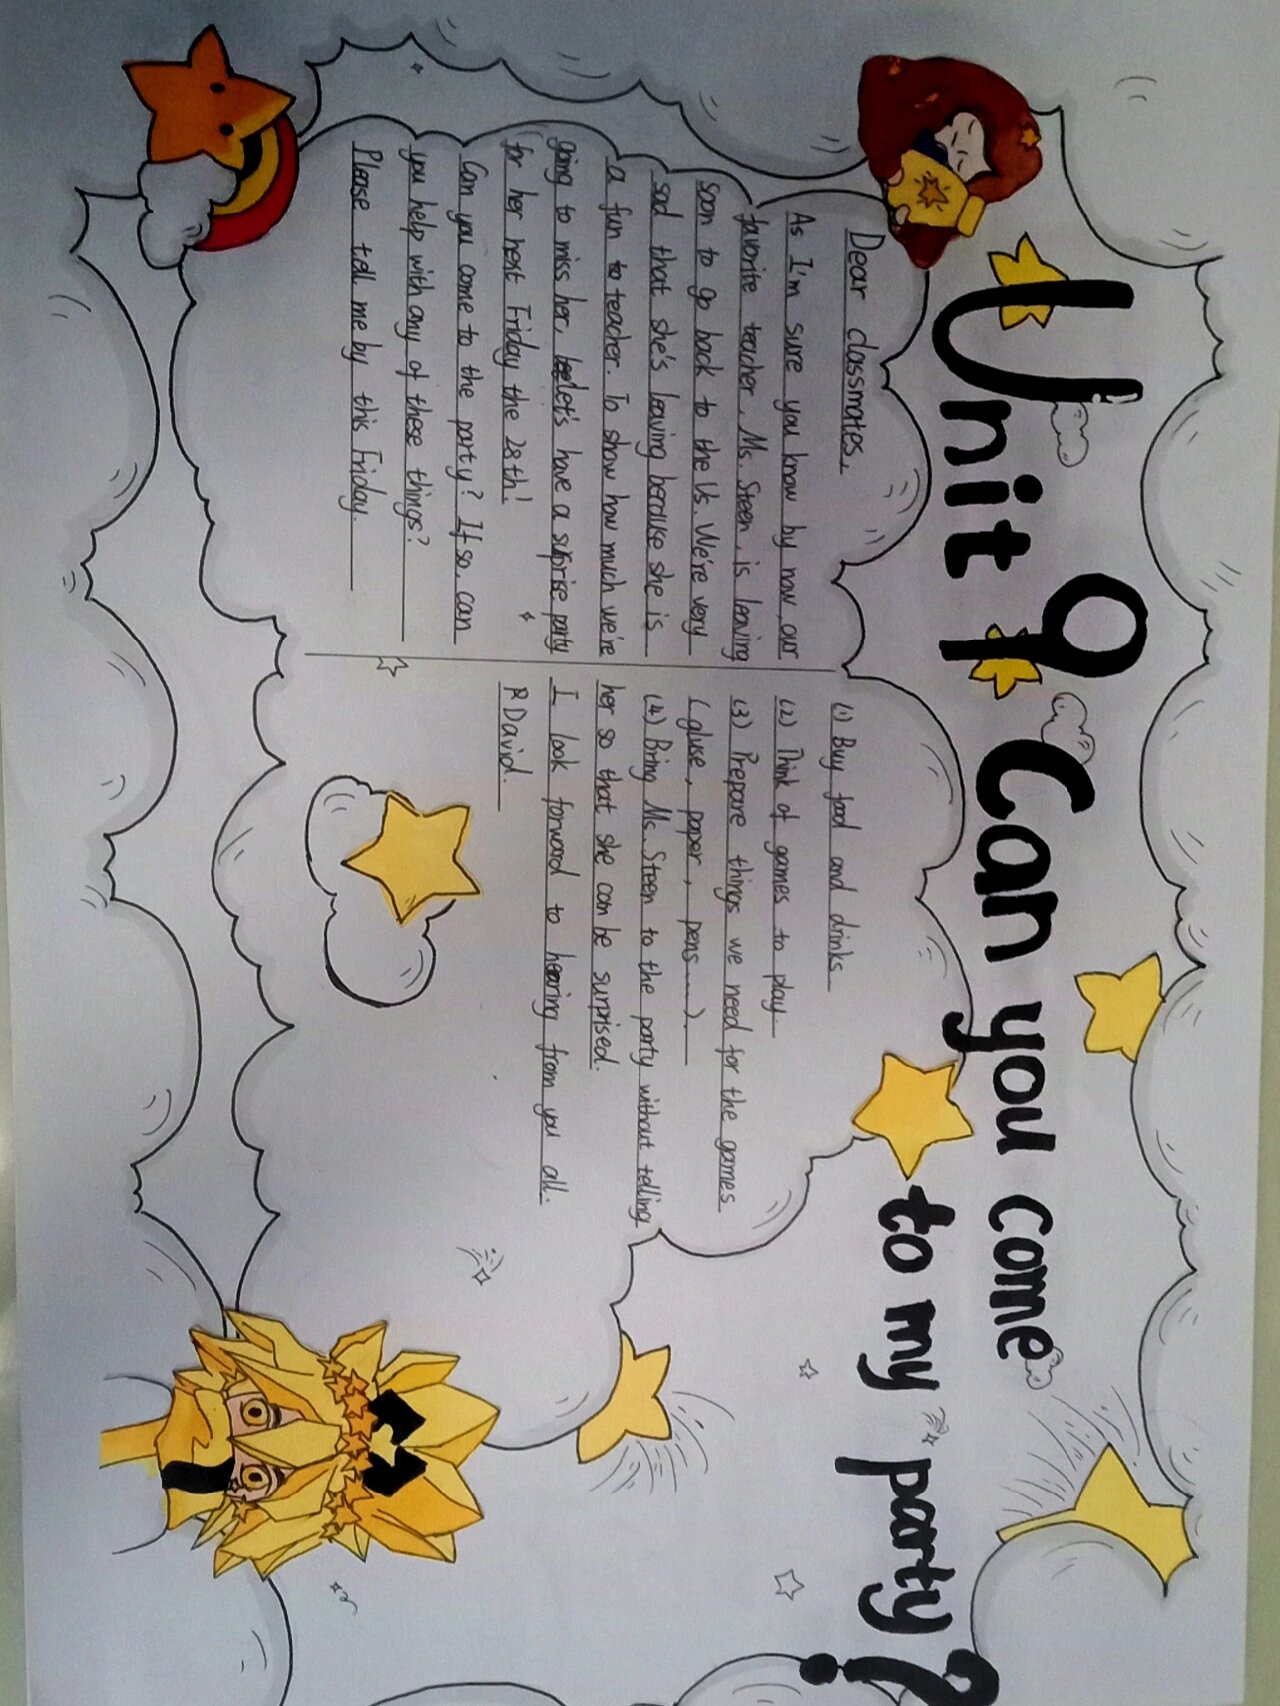 Unit 9 Can you come
to my party?
Dear classmates,
As I'm sure you know by now, our
favorite teacher, Ms. Steen, is leaving
soon to go back to the Us. We're very
sad that she's leaving because she is
a fun to teacher. To show how much we're
going to miss her, let's have a surprise party
for her next Friday the 28th!
Can you come to the party? If so, can
you help with any of these things?
Please tell me by this Friday.
(1) Buy food and drinks.
(2) Think of games to play
(3) Prepare things we need for the games
(gluse, paper, pens......).
(4) Bring Ms. Steen to the party without telling
her so that she can be surprised.
I look forward to hearing from you all.
David.